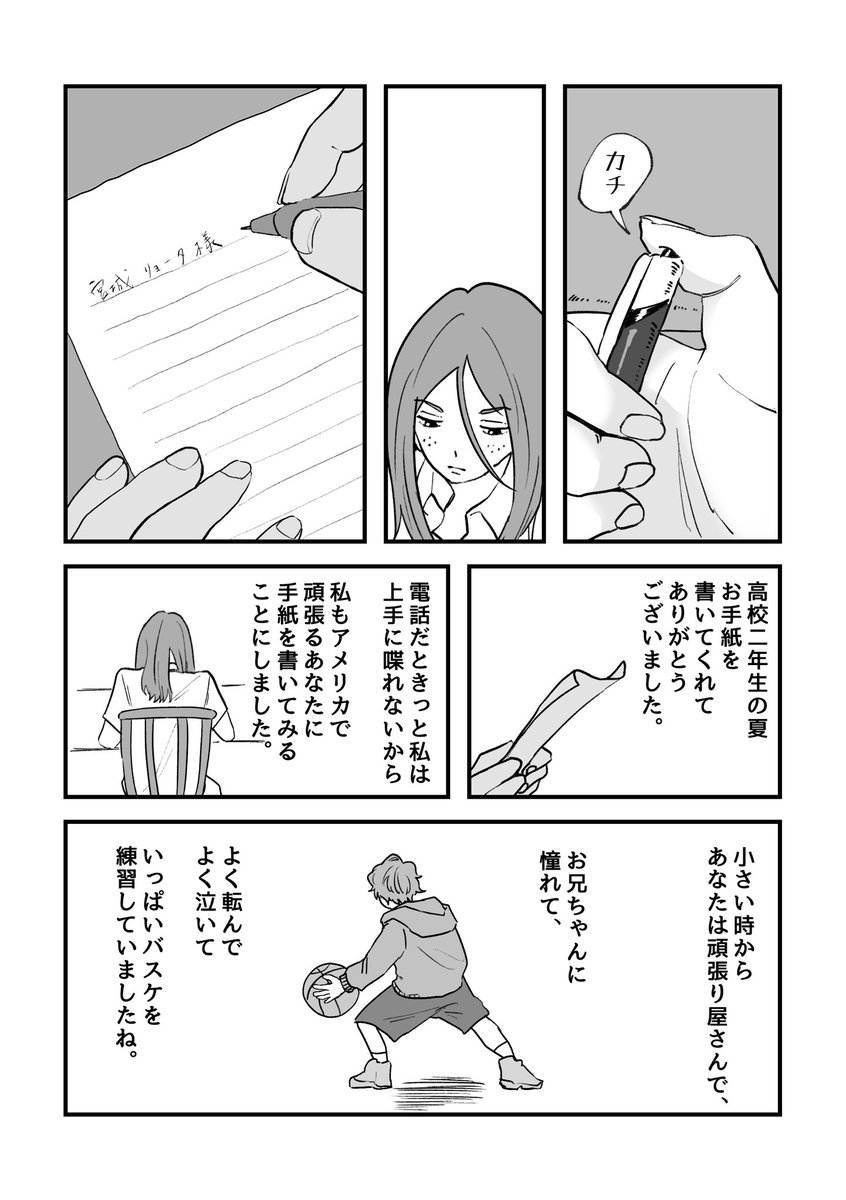 カチ
宮城 リョータ 様
高校二年生の夏
お手紙を
書いてくれて
ありがとう
ございました。
電話だときっと私は
上手に喋れないから
私もアメリカで
頑張るあなたに
手紙を書いてみる
ことにしました。
小さい時から
あなたは頑張り屋さんで、
お兄ちゃんに
憧れて、
よく転んで
よく泣いて
いっぱいバスケを
練習していましたね。